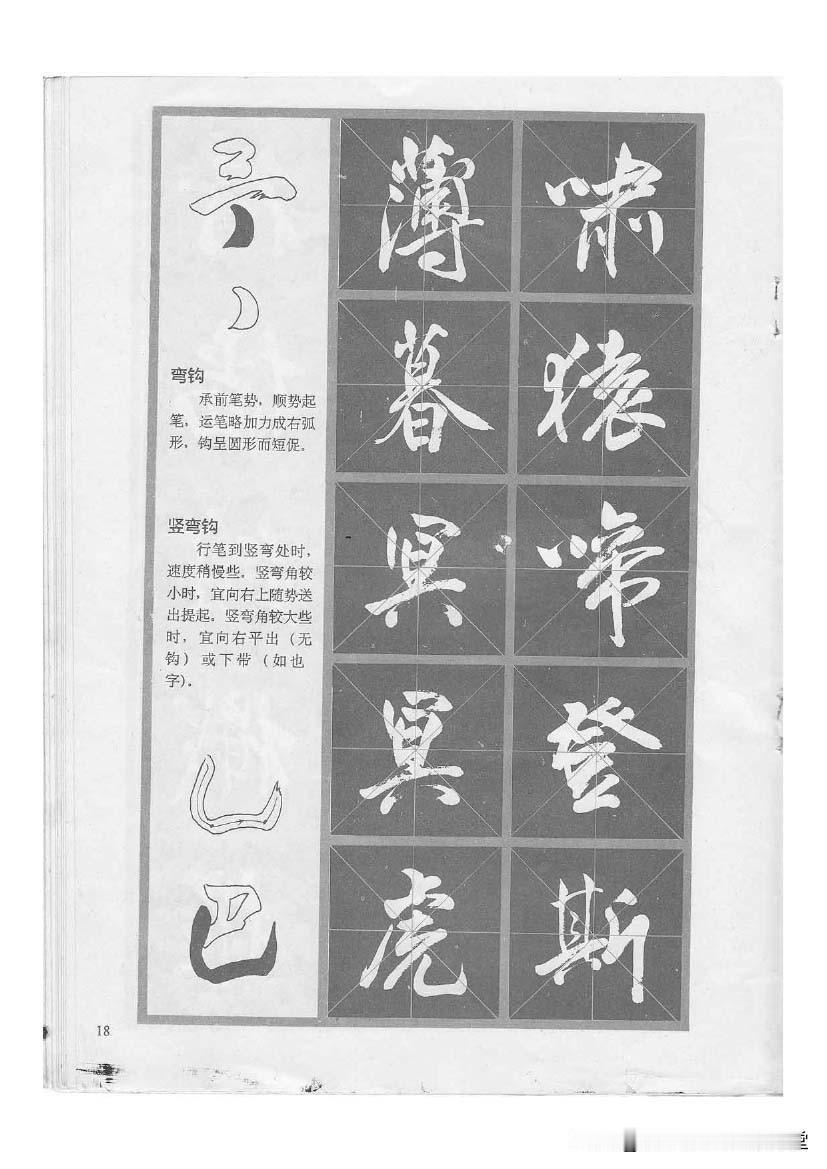 弯钩
承前笔势，顺势起
笔，运笔略加力成右弧
形，钩呈圆形而短促。
竖弯钩
行笔到竖弯处时，
速度稍慢些。竖弯角较
小时，宜向右上随势送
出提起。竖弯角较大些
时，宜向右平出（无
钩）或下带（如也
字）。
巴
薄
暮
冥
冥
虎
啸
猿
啼
登
斯
18